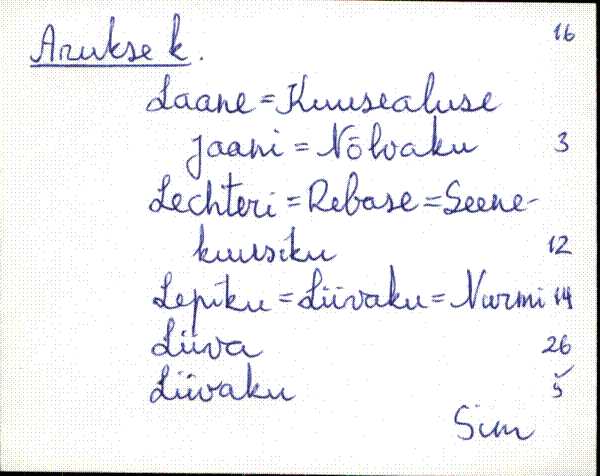 Arukse k. 16
Laane = Kuusealuse
Jaani = Nõlvaku 3
Lechteri = Rebase = Seene-
kuusiku 12
Lepiku = Liivaku = Nurmi 14
Liiva 26
Liivaku 5
Sim